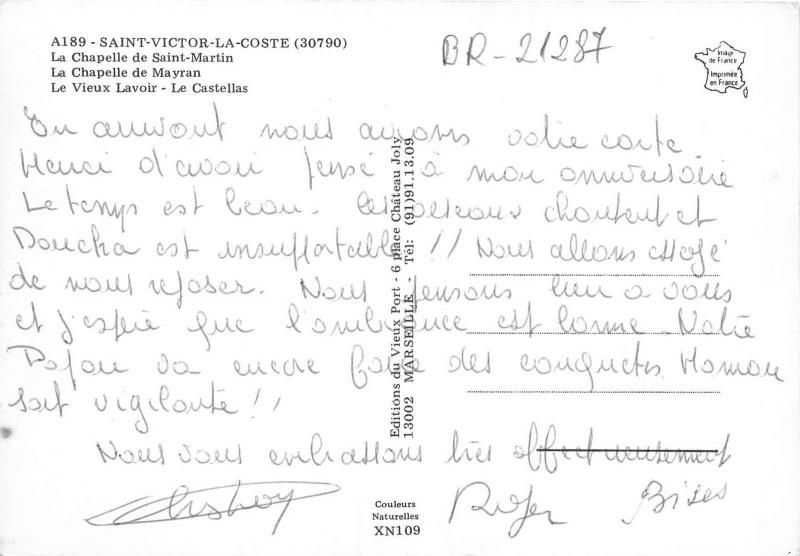 A189 - SAINT-VICTOR-LA-COSTE (30790)
La Chapelle de Saint-Martin
La Chapelle de Mayran
Le Vieux Lavoir - Le Castellas
BR-21287
Image
de France
Imprimée
en France
En arrivant nous avons votre carte
Merci d'avoir pensé à mon anniversaire
Le temps est beau. les oiseaux chantent et
Doucha est insupportable !! Nous allons essayé
de nous reposer. Nous pensons bien a vous
et j'espère que l'ambiance est bonne. Notre
Papou va encore faire des conquetes. Maman
soit vigilante !!
Nous vous embrassons très affectueusement
Roger Bises
Editions du Vieux Port - 6 place Château Joly
13002 MARSEILLE - Tél: (91)91.13.09
Couleurs
Naturelles
XN109